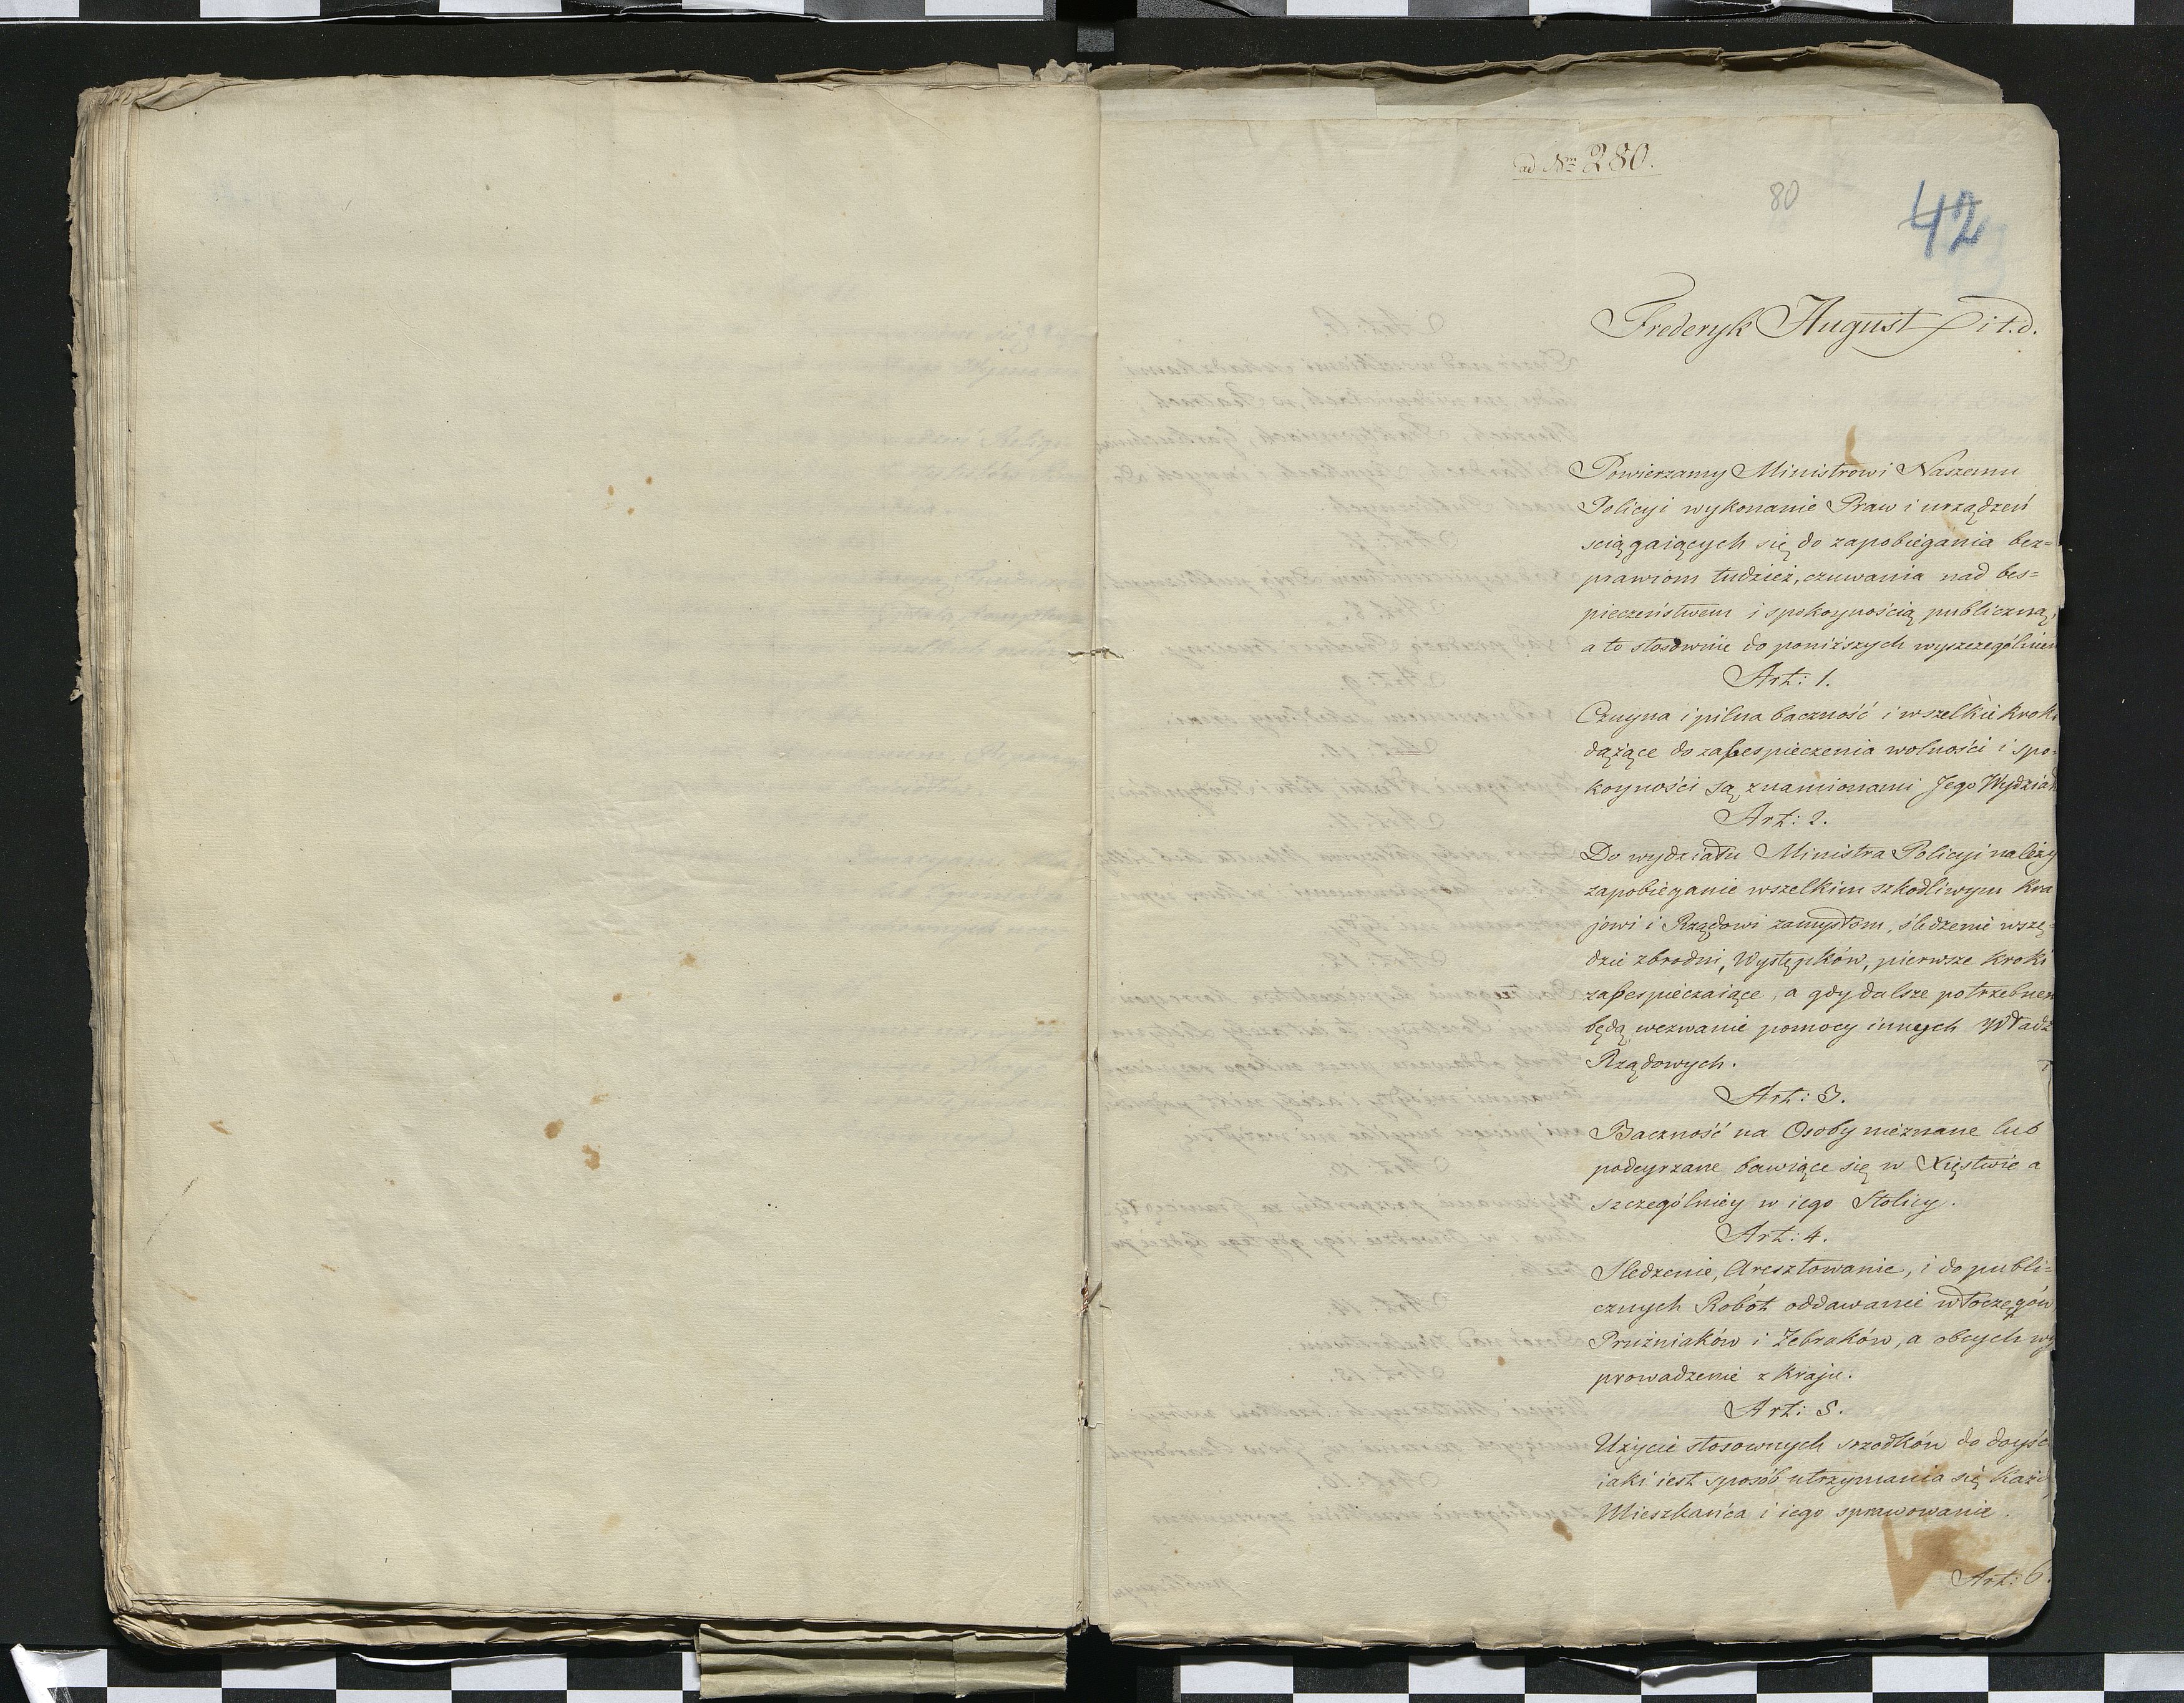 ad Nrm 280.
80
42
Frederyk August i t. d.
Powierzamy Ministrowi Naszemu
Policyi wykonanie Praw i urządzeń
sciągaiących się do zapobiegania bez=
prawiom tudzież, czuwania nad bes=
pieczeństwem i spokoynością publiczną,
a to stosownie do poniższych wyszczególnien
Art: 1.
Czuyna i pilna baczność i wszelkie kroki
dążące do zabespieczenia wolności i spo=
koyności są znamionami Jego Wydział
Art: 2.
Do wydziału Ministra Policyi należy
zapobieganie wszelkim szkodliwym Kra
jowi i Rządowi zamysłom, śledzenie wszę=
dzie zbrodni, Występków, pierwsze kroki
zabespieczaiące, a gdy dalsze potrzebnem
będą wezwanie pomocy innych Władz
Rządowych.
Art: 3.
Baczność na Osoby nieznane lub
podeyrzane bawiące się w Xięstwie a
szczególniey w iego Stolicy.
Art: 4.
Sledzenie, Aresztowanie, i do publi=
cznych Robót oddawanie włoczęgów
Prużniaków i Żebraków, a obcych wy
prowadzenie z Kraju.
Art: 5.
Użycie stosownych srzodków do doyśc
iaki iest sposób utrzymania się każd
Mieszkańca i iego sprawowanie.
Art: 6.